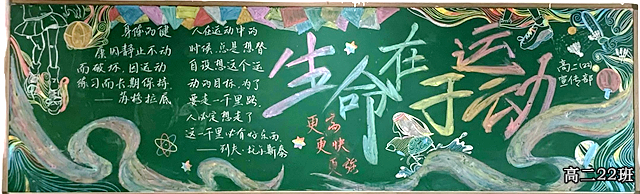 身体的健
康因静止不动
而破坏，因运动
练习而长期保持。
——苏格拉底
人在运动中的
时候，总是想替
自己想这个运
动的目标，为了
要走一千里路，
人必定想走了
这一千里必有好东西
——列夫·托尔斯泰
生命在于运动
更高
更快
更强
高二(22)
宣传部
高二22班